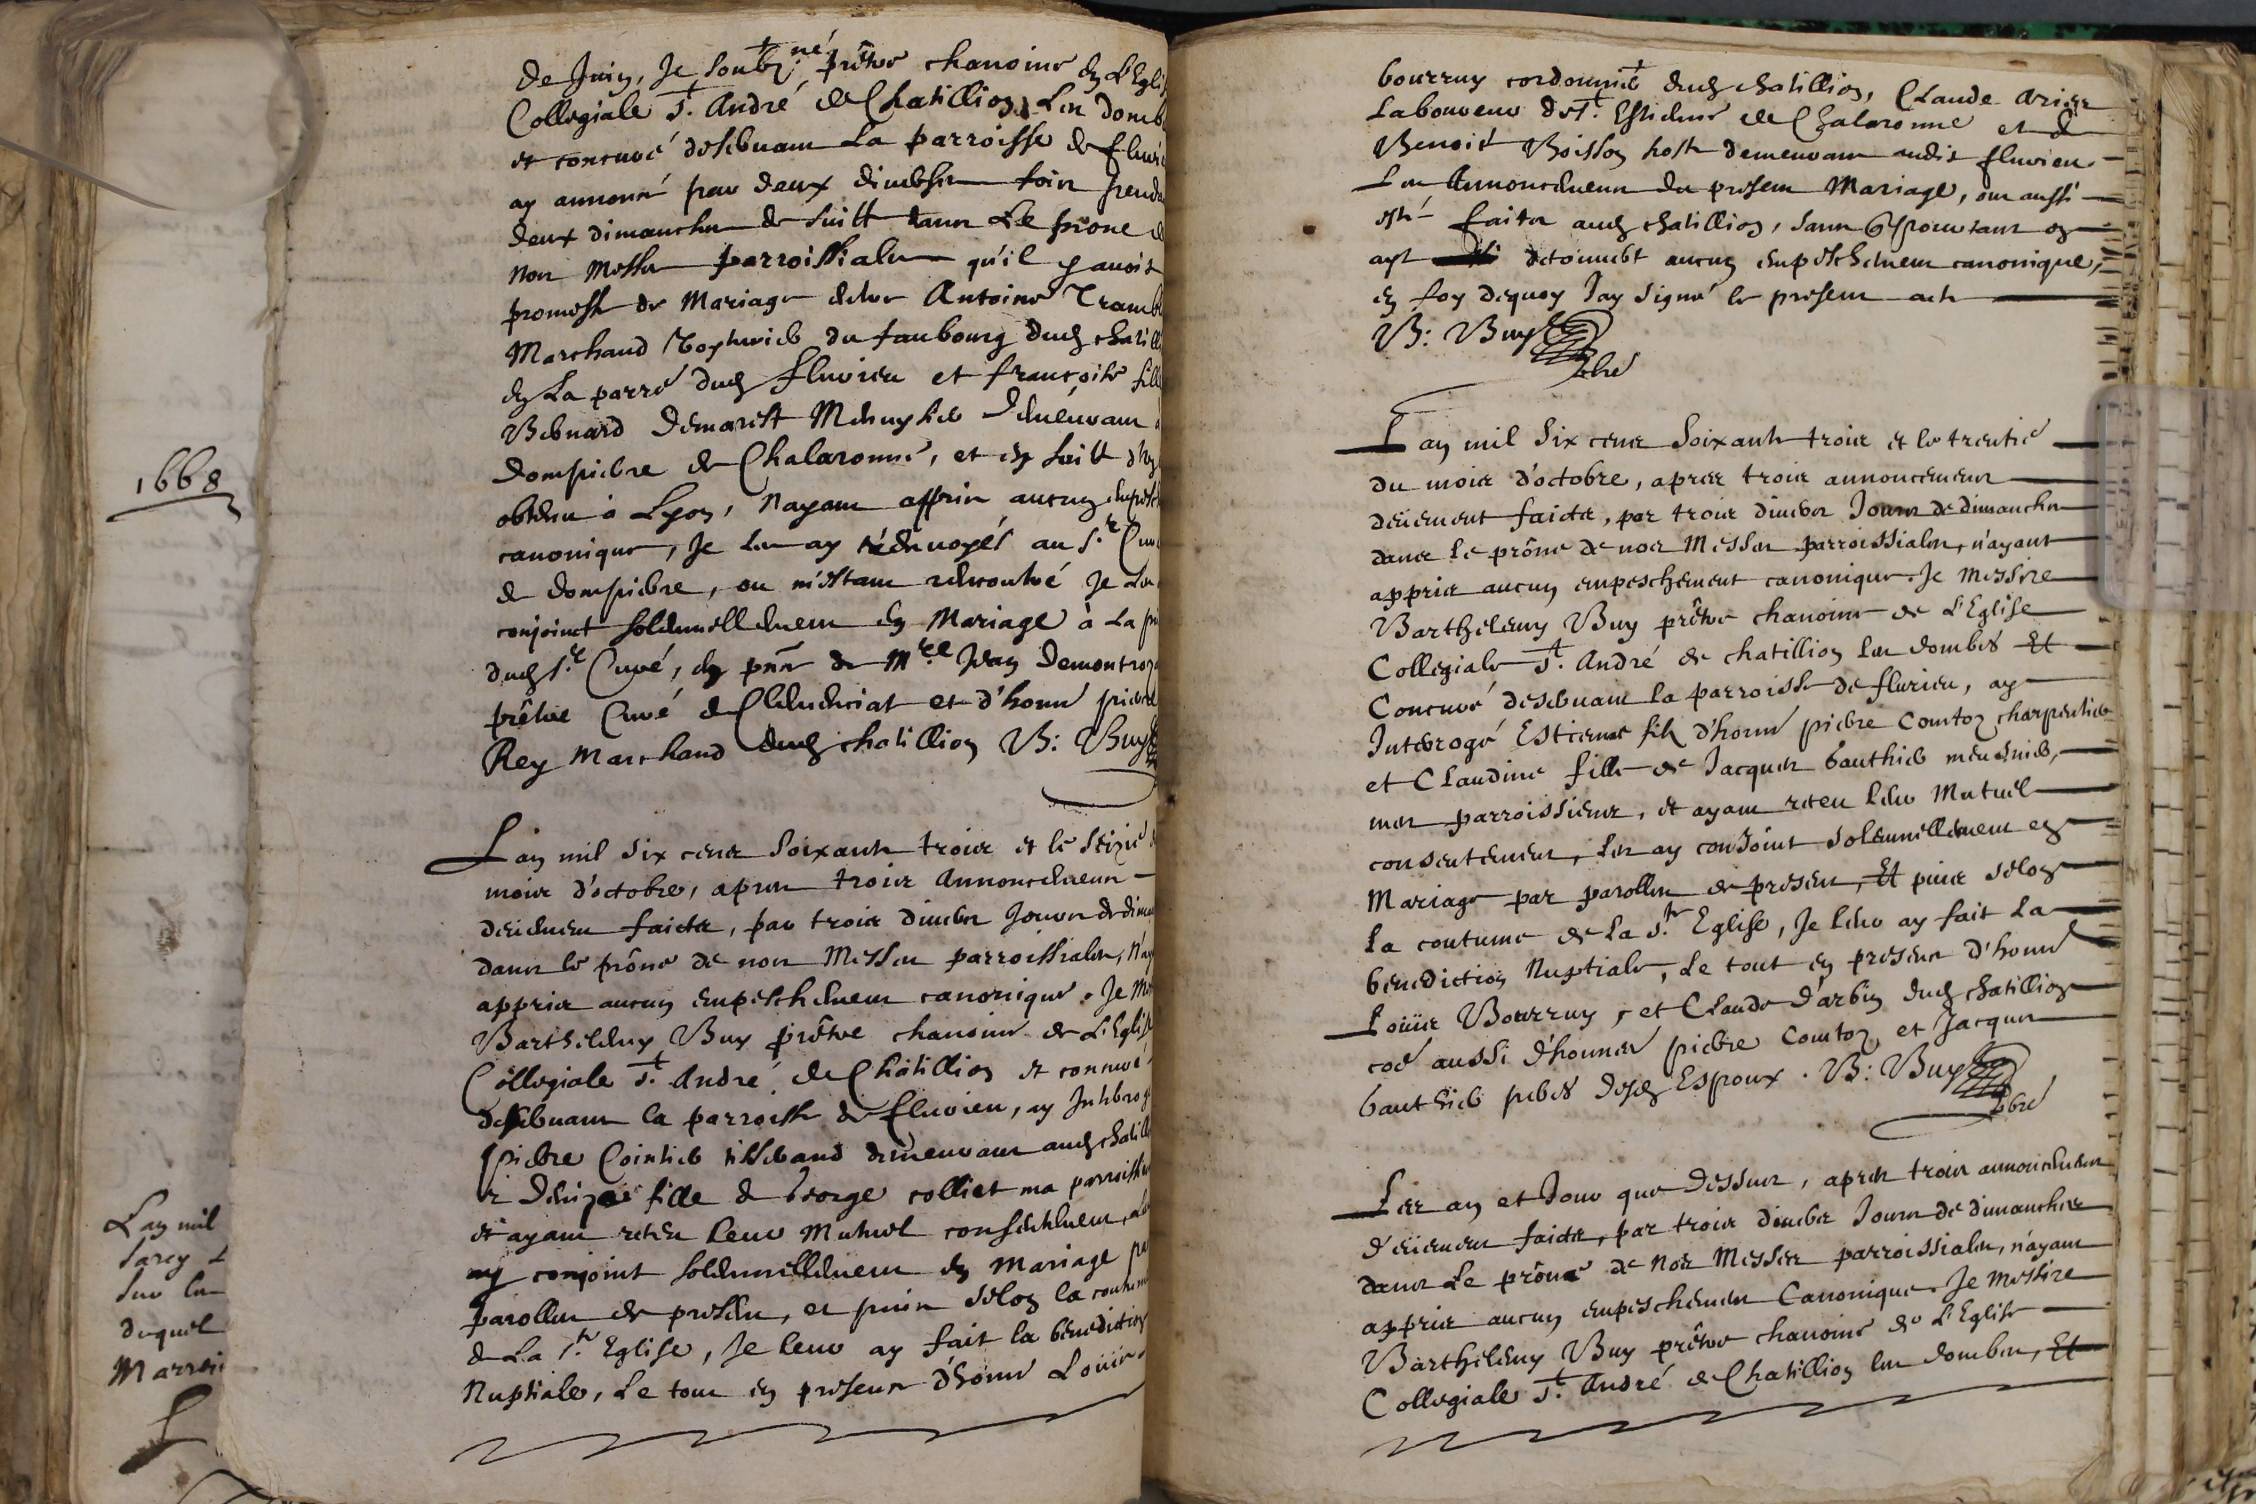 de Juin, Je soubz.né prêtre chanoine en L'Eglis
Collegiale St. André de Chatillion Les Domb
et concuré desservant La parroisse de fluri
ay annoncé par deux diverses fois penda
deux dimanches de suitt dans Le prone d
nos Messes parroissiales qu'il y avoit
promesse de Mariage entre Antoine Trambl
Marchand du faubourg dud chatill
en La parre dud flurieu et françoise fill
Bernard Demarest Menuysier demeurant
dompierre de Chalaronne, et en suitt
obtenu à Lyon, Nayant appris aucun empesch
canonique, Je les ay au Sr. Cur
de dompierre, ou m'estant rencontré Je Les
conjoinct solennellement en Mariage à La pr
dud Sr. Curé, en pnce de Mre Jean Demontroz
prêtre Curé de Clemenciat et d'honne pierre
Rey Marchand dud chatillion B: Buy
1668
L'an mil six cens soixante trois et le seizie
mois d'octobre, apres trois Annoncemens
deuement faicts, par trois divers Jours de dima
dans le prône de nos Messes parroissiales, N'ay
appris aucun empeschement canonique. Je Me
Barthelemy Buy prêtre chanoine de L'Eglise
Collegiale St. André de Chatillion et concuré
desservant la parroisse de flurieu, ay Interrog
pierre Cointier tisserand demeurant aud chatill
et Denize fille de George colliet ma parroissie
et ayant receu Leur Mutuel consentement, Les
ay conjoint solennellement en Mariage pa
parolles de present, et puis selon la coutume
de La Ste. Eglise, Je leur ay fait la benediction
Nuptiale, Le tout en presence d'honne Louis
Lan mil
Sur les
duquel
bourruy cordonnier dud chatillion, Claude
Laboureur de St. Estienne de Chalaronne et de
Benoit Boisson hoste demeurant audit flurieu
Les Annoncemens du present Mariage, ont aussi
esté faites aud chatillion, sans que pourtant on
ayt decouvert aucun empeschement canonique,
en foy dequoy Jay signé le present acte
B: Buy
pbre
L'an mil six cens soixante trois et le trentie
du mois d'octobre, apres trois annoncemens
deüement faicts, par trois divers Jours de dimanches
dans le prône de nos Messes parroissiales, n'ayant
appris aucun empeschement canonique. Je Messire
Barthelemy Buy prêtre chanoine de L'Eglise
Collegiale St. André de chatillion les dombes Et
Concuré desservant la parroisse de flurieu, ay
Interrogé Estienne fils d'honne pierre Comtoz charpentier
et Claudine fille de Jacques Gauthier meusnier,
mes parroissiens, et ayant receu leur Mutuel
consentement, les ay conjoint solennellement en
Mariage par parolles de present, Et puis selon
la coutume de la Ste. Eglise, Je leur ay fait La
benediction Nuptiale, Le tout en presence d'honne
Loüis Bourruy, et Claude Darbin dud chatillion
coe aussi d'honnes pierre Comtoz et Jacques
Gauthier peres desd Espoux. B: Buy
pbre
Les an et Jour que dessus, apres trois annoncemens
deüement faicts, par trois divers Jours de dimanches
dans Le prône de Nos Messes parroissiales, n'ayant
appris aucun empeschement Canonique. Je Messire
Barthelemy Buy prêtre chanoine de L'Eglise
Collegiale St. André de Chatillion les dombes, Et